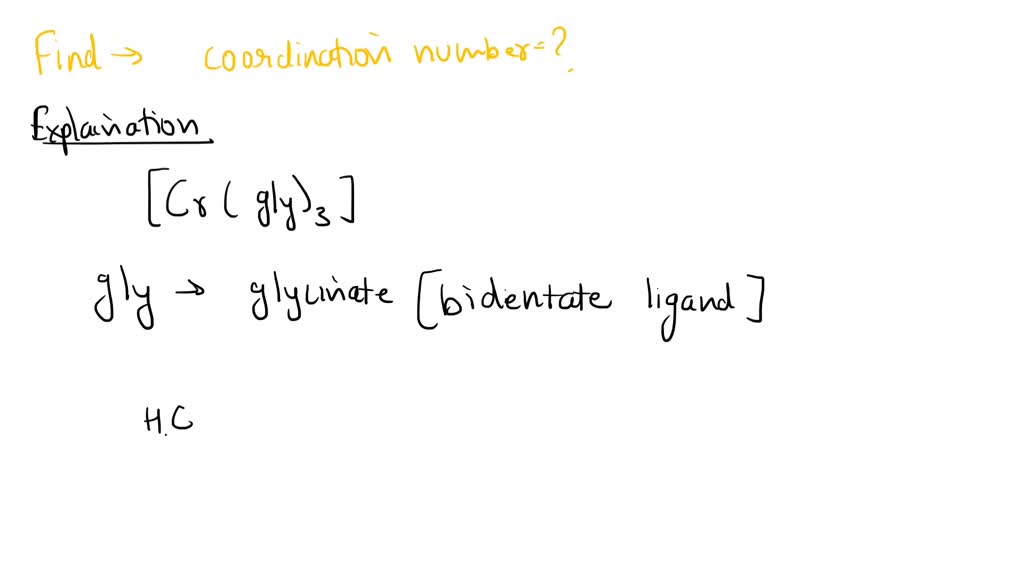 Find → coordination number=?
Explaination
[Cr(gly)3]
gly → glycinate [bidentate ligand]
H.C